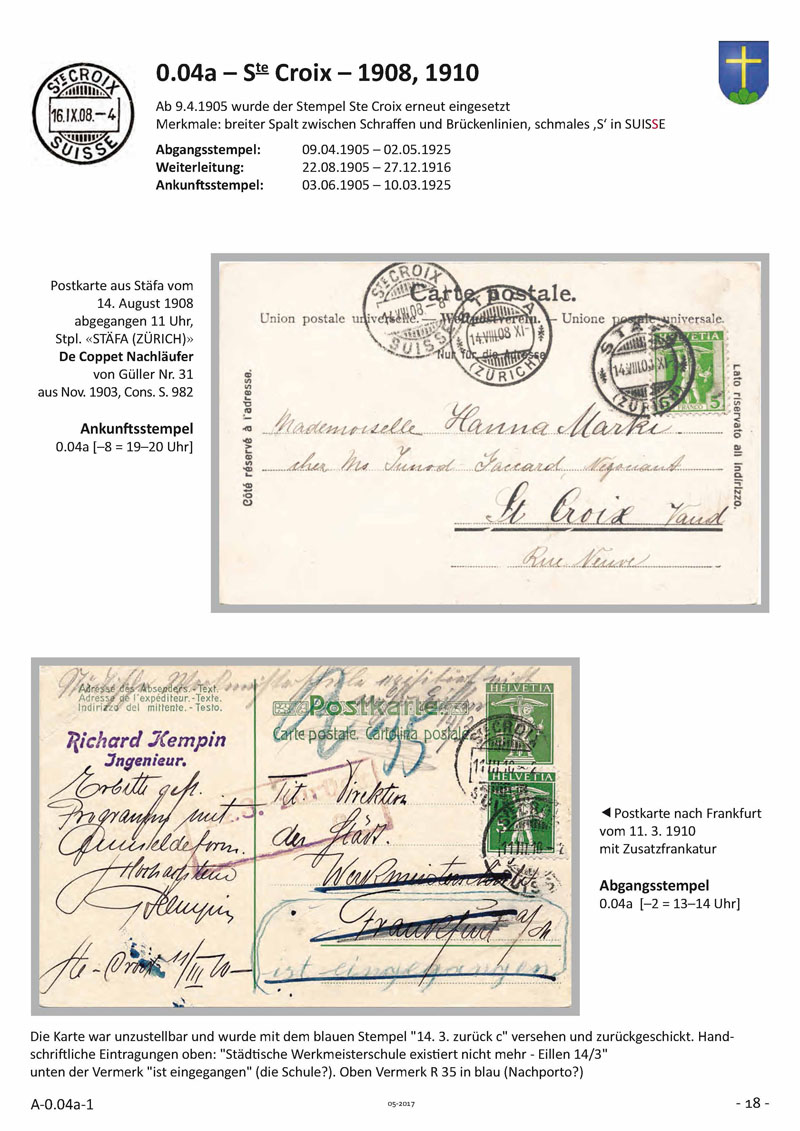 0.04a – Ste Croix – 1908, 1910
STE CROIX
16.IX.08.–4
SUISSE
Ab 9.4.1905 wurde der Stempel Ste Croix erneut eingesetzt
Merkmale: breiter Spalt zwischen Schraffen und Brückenlinien, schmales ‚S‘ in SUISSE
Abgangsstempel: 09.04.1905 – 02.05.1925
Weiterleitung: 22.08.1905 – 27.12.1916
Ankunftsstempel: 03.06.1905 – 10.03.1925
Postkarte aus Stäfa vom
14. August 1908
abgegangen 11 Uhr,
Stpl. «STÄFA (ZÜRICH)»
De Coppet Nachläufer
von Güller Nr. 31
aus Nov. 1903, Cons. S. 982
Ankunftsstempel
0.04a [–8 = 19–20 Uhr]
STE CROIX
14.VIII.08.–8
SUISSE
STÄFA
14.VIII.08 XI-
(ZÜRICH)
STÄFA
14.VIII.08 XI-
(ZÜRICH)
HELVETIA
FRANCO 5
Carte postale.
Union postale universelle. — Weltpostverein. — Unione postale universale.
Nur für die Adresse
Côté réservé à l'adresse.
Lato riservato all indirizzo.
Mademoiselle Hanna Marki
chez Ms Junod-Jaccard, Negonant
St Croix Vaud
Rue Neuve
Adresse des Absenders.-Text.
Adresse de l'expéditeur.-Texte.
Indirizzo del mittente.-Testo.
Postkarte.
Carte postale. Cartolina postale.
HELVETIA
HELVETIA
STE CROIX
11.III.10.–2
SUISSE
11.III.10.–2
R 35
Richard Kempin
Ingenieur.
Erbitte gefl.
Programm mit
Anmeldeform.
Hochachtend
Kempin
Ste-Croix 11/III 10
Tit Direktion
der Städt.
Werkmeisterschule
Frankfurt a/M
ist eingegangen
◄ Postkarte nach Frankfurt
vom 11. 3. 1910
mit Zusatzfrankatur
Abgangsstempel
0.04a [–2 = 13–14 Uhr]
Die Karte war unzustellbar und wurde mit dem blauen Stempel "14. 3. zurück c" versehen und zurückgeschickt. Hand-
schriftliche Eintragungen oben: "Städtische Werkmeisterschule existiert nicht mehr - Eillen 14/3"
unten der Vermerk "ist eingegangen" (die Schule?). Oben Vermerk R 35 in blau (Nachporto?)
A-0.04a-1
05-2017
- 18 -